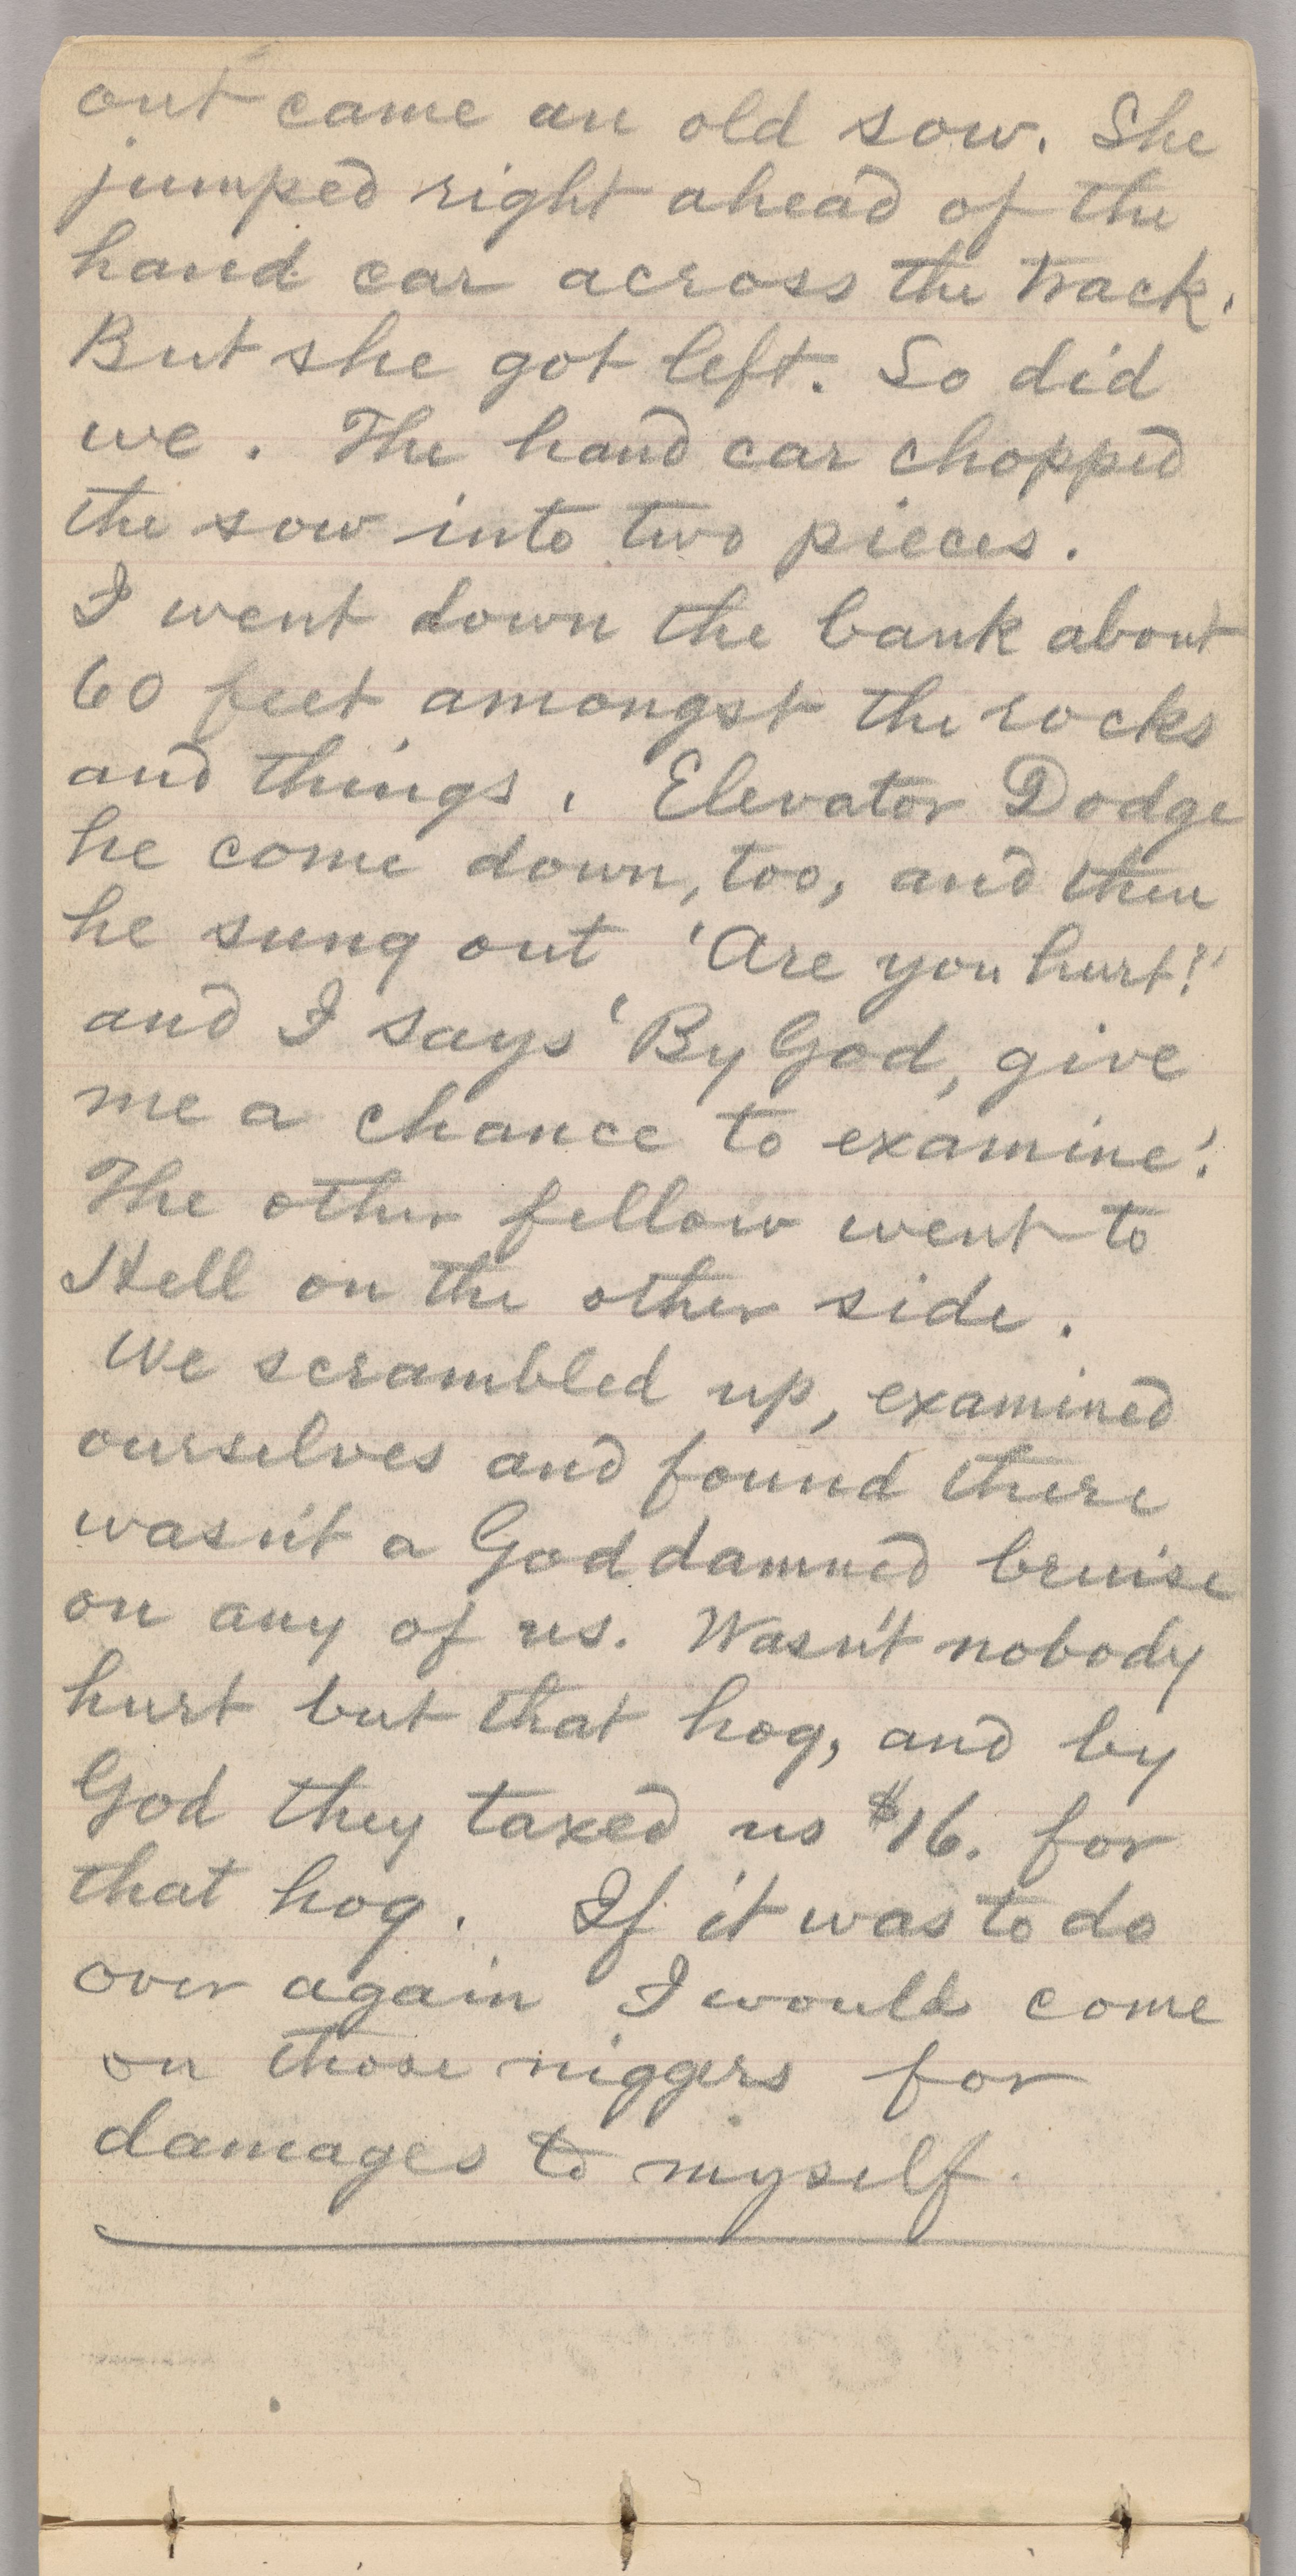 out came an old sow. She
jumped right ahead of the
hand car across the track.
But she got left. So did
we. The hand car chopped
the sow into two pieces.
I went down the bank about
60 feet amongst the rocks
and things. Elevator Dodge
he come down, too, and then
he sung out 'Are you hurt?'
and I says 'By God, give
me a chance to examine'.
The other fellow went to
Hell on the other side.
We scrambled up, examined
ourselves and found there
wasn't a Goddamned bruise
on any of us. Wasn't nobody
hurt but that hog, and by
God they taxed us $16. for
that hog. If it was to do
over again I would come
on those niggers for
damages to myself.